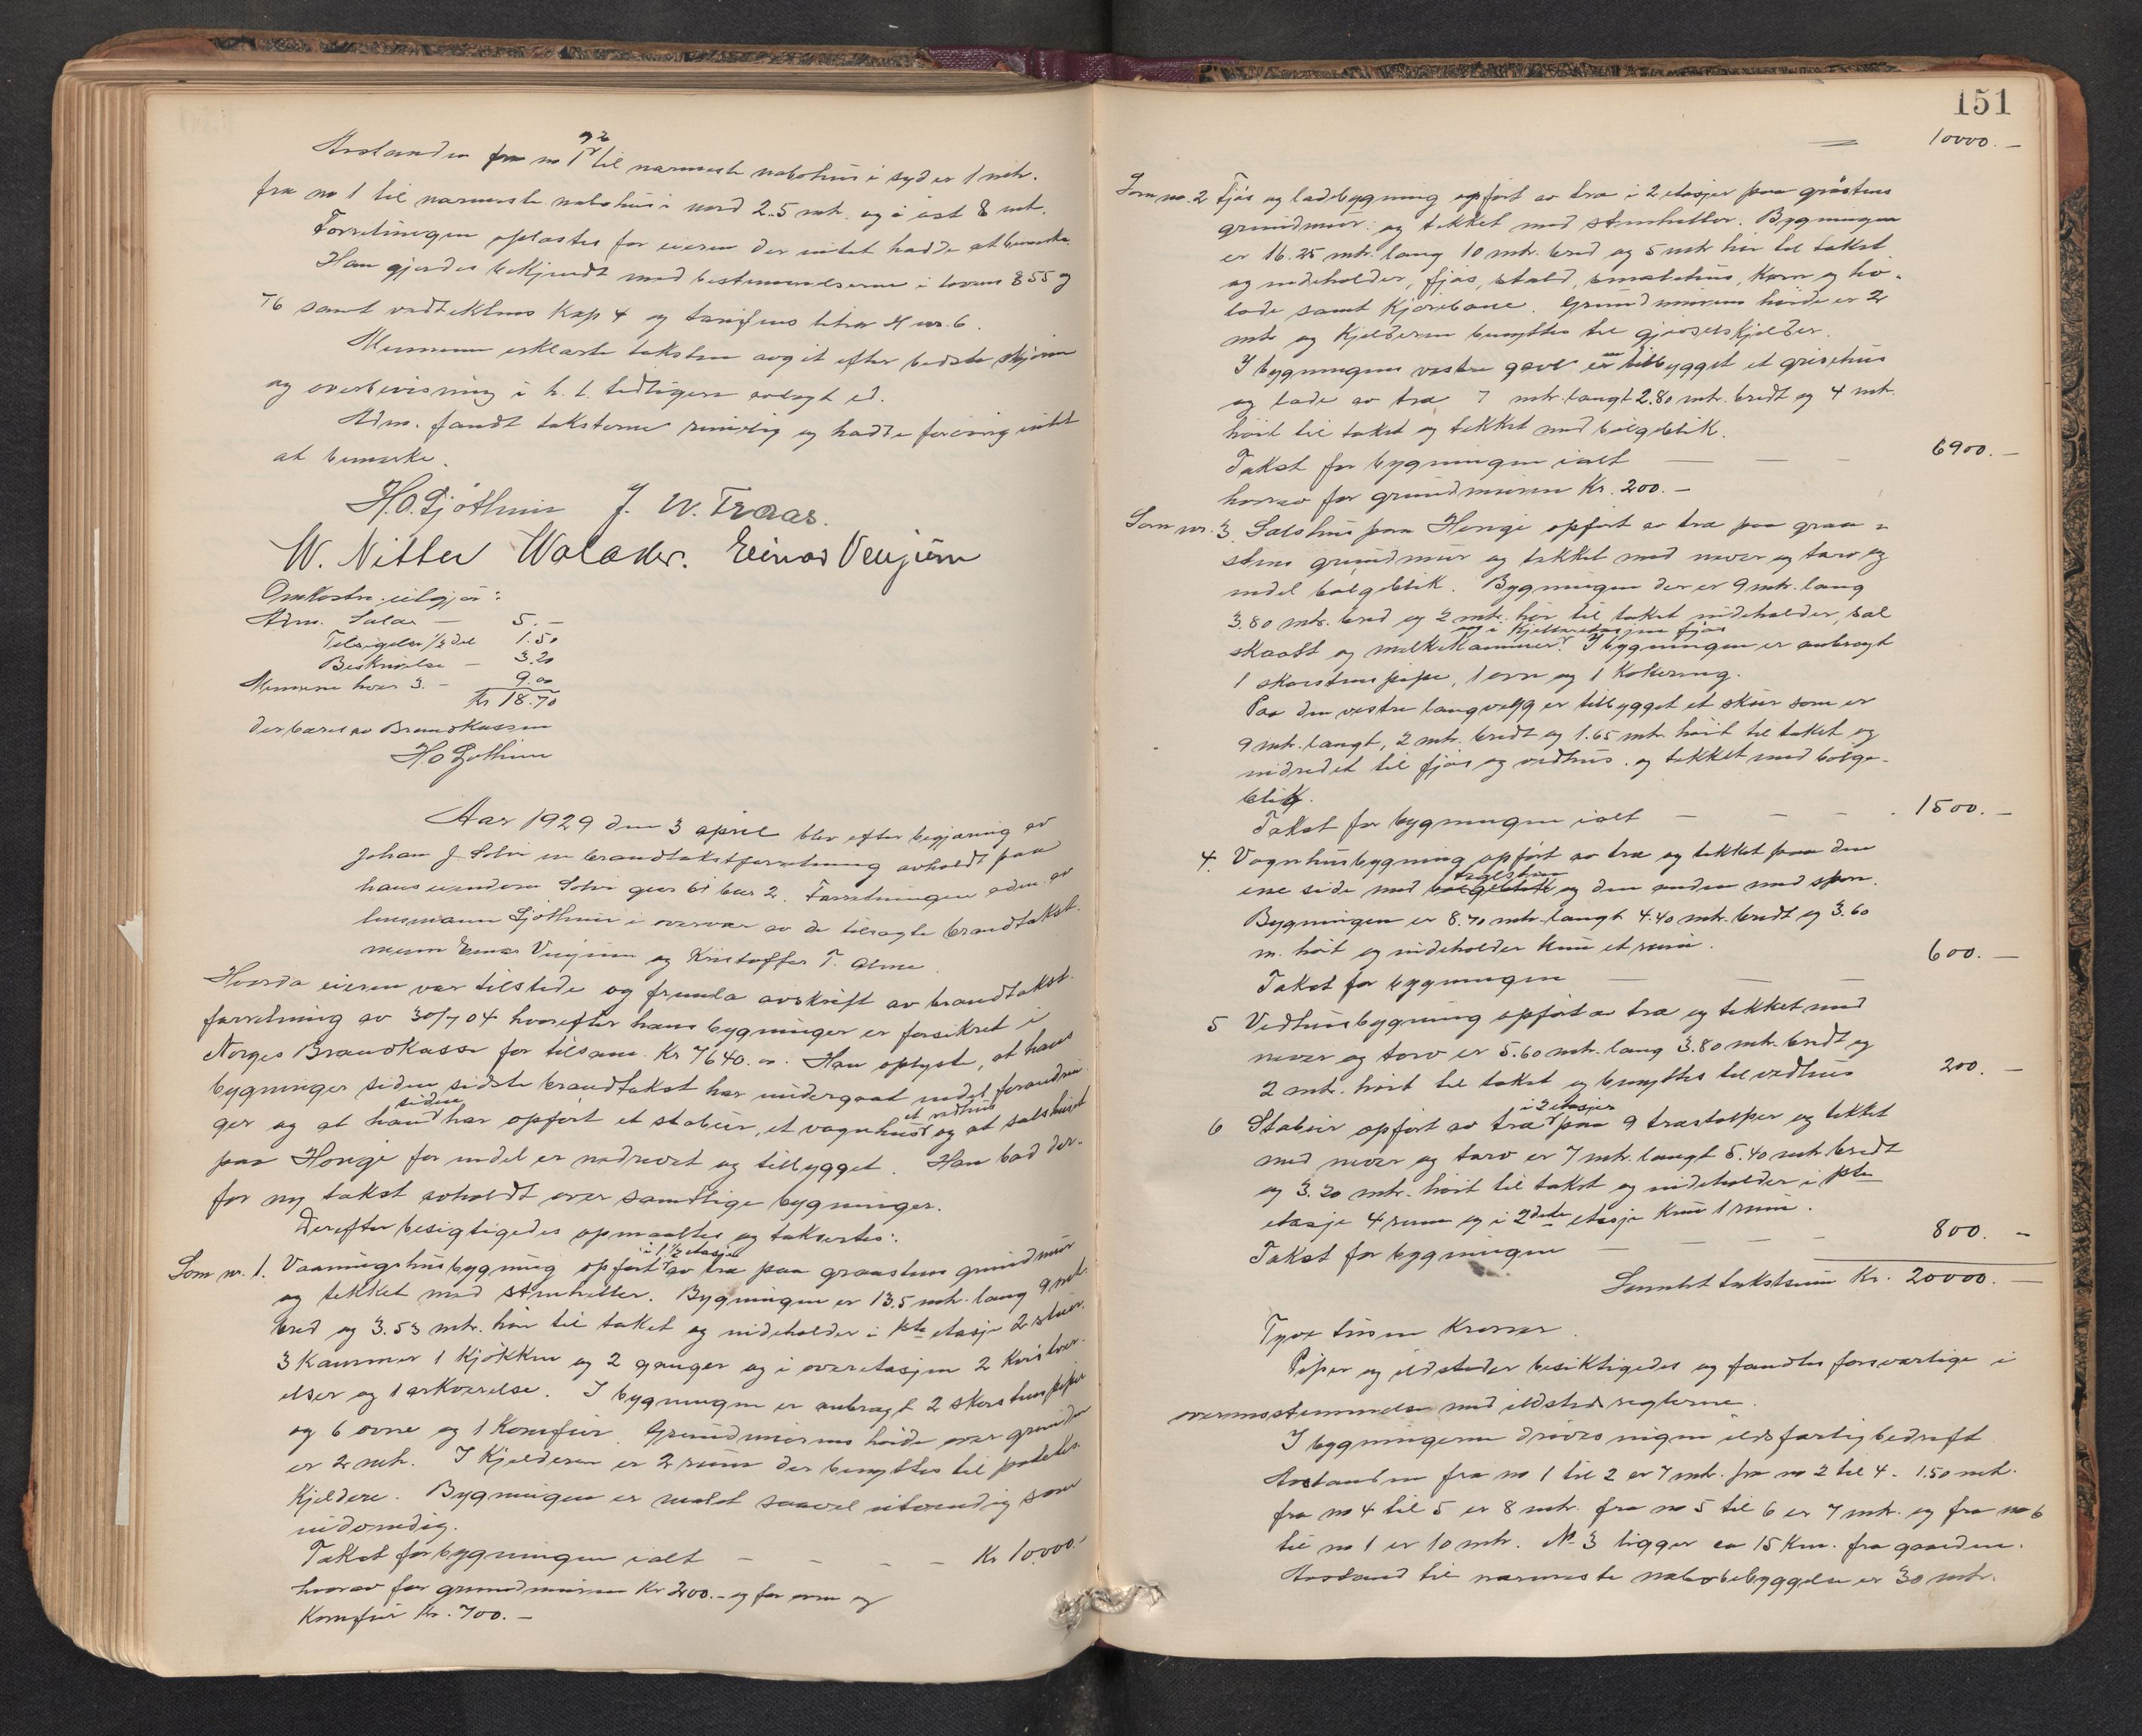 Avstanden fra no 1 og 2 til nærmeste nabohus i syd er 1 mtr.
fra no 1 til nærmeste nabohus i nord 2.5 mtr. og i øst 8 mtr.
Forretningen oplæstes for eieren der intet hadde at bemerke.
Han gjordes bekjendt med bestemmelserne i lovens § 55 og
76 samt vedtektenes Kap 4 og tarifens litra H nr. 6.
Mennene erklærte taksten avgit efter bedste skjøn
og overbevisning i h. t. tidligere avlagt ed.
Adm. fandt taksterne rimelig og hadde forøvrig intet
at bemerke.
H. O. Ljøthun J. W. Traas.
W. Nitter Walaker. Einar Venjum
Omkostn. utgjør:
Adm. Salar — 5. —
Tilsigelse 1/3 del 1.50
Beskrivelse — 3.20
Mennene hver 3. — 9.00
Kr 18.70
der bæres av Brandkassen
H. O. Ljøthun
Aar 1929 den 3 april blev efter begjæring av
Johan J. Solvi en brandtakstforretning avholdt paa
hans eiendom Solvi gnr 61 bnr 2. Forretningen adm. av
lensmann Ljøthun i overvær av de tilsagte brandtakst-
menn Einar Venjum og Kristoffer T. Alme.
Hvorda eieren var tilstede og fremla avskrift av brandtakst-
forretning av 30/7 04 hvorefter hans bygninger er forsikret i
Norges Brandkasse for tilsam. Kr 7640.00. Han oplyste, at hans
bygninger siden sidste brandtakst har undergaat endel forandrin-
ger og at han siden har opført et stabur, et vognhus et vedhus og at selshuset
paa Honge for endel er nedrevet og tilbygget. Han bad der-
for ny takst avholdt over samtlige bygninger.
Derefter besigtigedes opmaaltes og takseertes:
Som nr. 1. Vaaningshusbygning opført i 1 1/2 etasje av træ paa graastens grundmur
og tekket med stenheller. Bygningen er 13.5 mtr. lang 9 mtr.
bred og 3.53 mtr. høi til taket og indeholder i 1ste etasje 2 stuer
3 kammer 1 kjøkken og 2 ganger og i overetasjen 2 kvistvær-
elser og 1 arkværelse. I bygningen er anbragt 2 skorstenspiper
og 6 ovne og 1 komfur. Grundmurens høide over grunden
er 2 mtr. I kjelderen er 2 rum der benyttes til potetes-
kjeldere. Bygningen er malet saavel utvendig som
indvendig.
Takst for bygningen ialt — — — — Kr 10.000.-
hvorav for grundmuren Kr 200.- og for ovne og
Komfur Kr. 700. —
151
10000. —
Som no. 2 Fjøs og ladebygning opført av træ i 2 etasjer paa gråstens
grundmur og tekket med stenheller. Bygningen
er 16.25 mtr. lang 10 mtr. bred og 5 mtr høi til taket
og indeholder, fjøs, stald, smalehus, korn og hø-
lade samt kjørebane. Grundmurens høide er 2
mtr og kjelderen benyttes til gjødselskjelder.
I bygningens vestre gavl er tilbygget et grisehus
og lade av træ 7 mtr. langt 2.80 mtr. bredt og 4 mtr.
høit til taket og tekket med bølgeblik.
Takst for bygningen ialt — — — 6900. —
hvorav for grundmuren Kr. 200. —
Som nr. 3. Selshus paa Honge opført av træ paa graa-
stens grundmur og tekket med never og torv og
endel bølgeblik. Bygningen der er 9 mtr. lang
3.80 mtr. bred og 2 mtr. høi til taket indeholder, sel
skaatt og melkekammer og i kjelleretasjen fjøs. I bygningen er anbragt
1 skorstenspipe, 1 ovn og 1 kokering.
Paa den vestre langvegg er tilbygget et skur som er
9 mtr. langt, 2 mtr. bredt og 1.65 mtr. høit til taket og
indredet til fjøs og vedhus. og tekket med bølge-
blik.
Takst for bygningen ialt — — — 1500. —
4. Vognhusbygning opført av træ og tekket paa den
ene side med teglsten og den anden med spon.
Bygningen er 8.70 mtr. langt 4.40 mtr. bredt og 3.60
m. høit og indeholder kun et rum.
Takst for bygningen — — — 600. —
5 Vedhusbygning opført av træ og tekket med
never og torv er 5.60 mtr. lang 3.80 mtr. bredt og
2 mtr. høit til taket og benyttes til vedhus 200. —
6 Stabur opført av træ i 2 etasjer paa 9 træstolper og tekket
med never og torv er 7 mtr. langt 5.40 mtr. bredt
og 3.20 mtr. høit til taket og indeholder i 1ste
etasje 4 rum og i 2den etasje kun 1 rum.
Takst for bygningen — — — — 800. —
Samlet takstsum Kr. 20000. —
Tyve tusen Kroner.
Piper og ildsteder besiktigedes og fandtes forsvarlige i
overensstemmelse med ildstedsreglerne.
I bygningerne drives ingen ildsfarlig bedrift.
Avstanden fra no 1 til 2 er 7 mtr. fra no 2 til 4. 1.50 mtr.
fra no 4 til 5 er 8 mtr. fra no 5 til 6 er 7 mtr. og fra no 6
til no 1 er 10 mtr. No 3 ligger ca 15 Km. fra gaarden.
Avstand til nærmeste nabobebyggelse er 30 mtr.